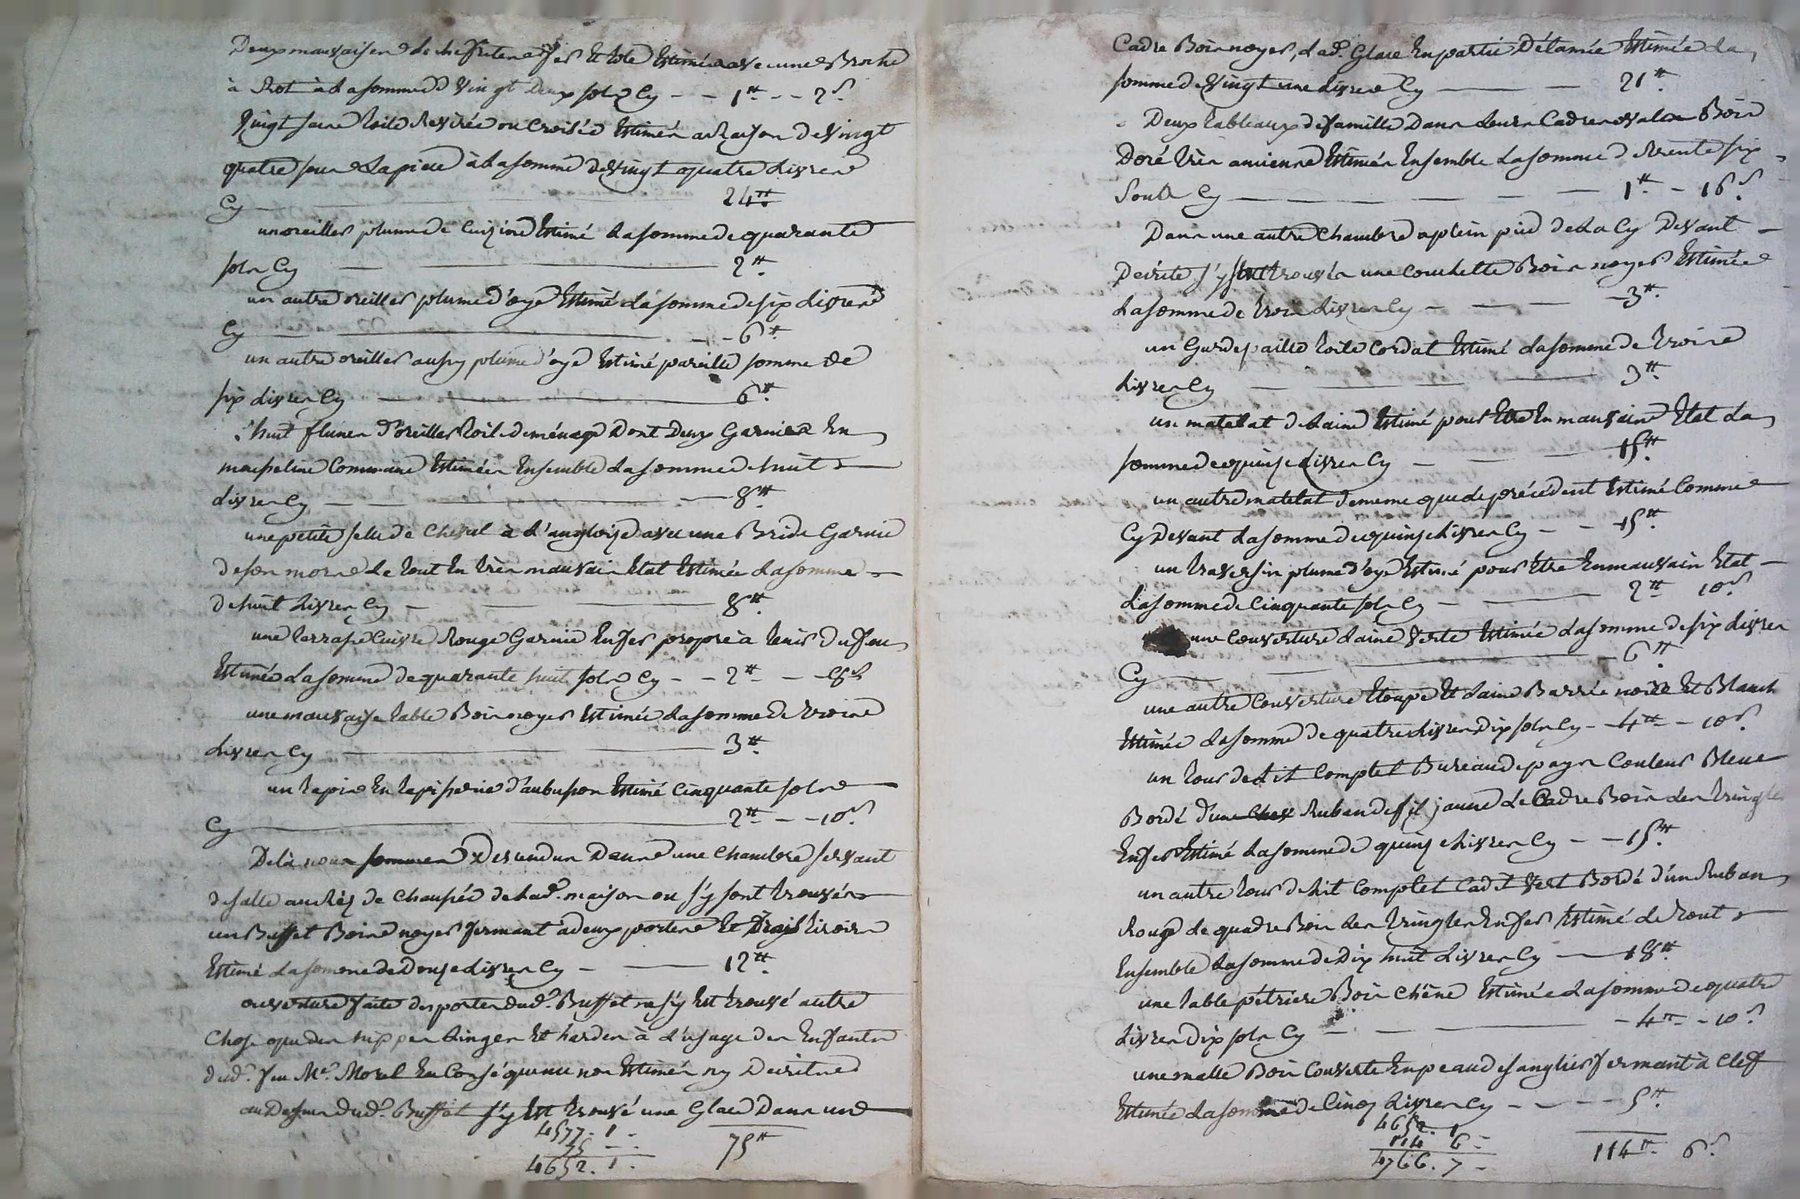 Deux mauvaises de chesfrettes fer et tole Estimées avec une Broche
à Rot à la somme de vingt deux sols Cy - - 1# - - 2s
Vingt sacs toile Rézirée ou Croisée Estimés a Raison de vingt
quatre sous la piece à la somme de vingt quatre Livres
Cy 24#
un oreiller plume de Cuizine Estimé la somme de quarante
sols Cy 2#
un autre oreiller plume d'oye Estimé la somme de six Livres
Cy 6#
un autre oreiller aussy plume d'oye Estimé pareille somme de
six Livres Cy 6#
huit flunes d'oreiller toile de ménage Dont Deux Garnies En
mouseline Commune Estimées Ensemble la somme de huit
Livres Cy 8#
une petite selle de Cheval à L'angloise avec une Bride Garnie
de son mors le tout En très mauvais Etat Estimée la somme
de huit Livres Cy 8#
une Cuivre Rouge Garnie En fer propre à tenir du feu
Estimée la somme de quarante huit sols Cy - - 2# - - 8s
une mauvaise table Bois noyer Estimée la somme de trois
Livres Cy 3#
un tapis En tapisserie d'aubusson Estimé Cinquante sols
Cy 2# - - 10s
De là nous sommes Descendus Dans une Chambre servant
de salle au Réz de Chaussée de lad. maison ou s'y sont trouvés
un Buffet Bois noyer fermant à deux portes Et tiroirs
Estimé la somme de Douze Livres Cy 12#
ouverture faite des portes dud. Buffet ne s'y Est trouvé autre
Chose que des nippes Linges Et hardes à L'usage des Enfants
dud. feu Mr. Morel En Conséquence non Estimés ny Decrites
au Dessus dud. Buffet s'y Est trouvé une Glace Dans une
4577. 1 -
75 - -
4652. 1 -
75#
Cadre Bois noyer, lad. Glace En partie Détamée Estimée La
somme de vingt une Livres Cy 21#
Deux tableaux de famille Dans Leurs Cadres ovales Bois
Doré très anciens Estimés Ensemble la somme de trente six
Sous Cy 1# - 16s
Dans une autre Chambre a plein pied de La Cy Devant
Décrite s'y trouvés une Couchette Bois noyer Estimée
La somme de trois Livres Cy 3#
un Gardepaille toile Cordat Estimé La somme de trois
Livres Cy 3#
un matelat de Laine Estimé pour Etre En mauvais Etat La
somme de quinze Livres Cy 15#
un autre matelat de meme que le précédent Estimé Comme
Cy Devant La somme de quinze Livres Cy - - 15#
un traversin plume d'oye Estimé pour Etre En mauvais Etat
La somme de Cinquante sols Cy 2# 10s
une Couverture Laine Verte Estimée La somme de six Livres
Cy 6#
une autre Couverture Etoupe Et Laine Barrée noire Et Blanch
Estimée La somme de quatre Livres Dix sols Cy - 4# - 10s
un tour de Lit Complet Bure au de pays Couleur Bleue
Bordé d'une Ruban de fil jaune le Cadre Bois les tringles
En fer Estimé La somme de quinze Livres Cy - - 15#
un autre tour de Lit Complet Cadit Vert Bordé d'un Ruban
Rouge le quadre Bois les tringles En fer Estimé le tout
Ensemble La somme de Dix huit Livres Cy 18#
une table pétriere Bois Chêne Estimée La somme de quatre
Livres Dix sols Cy - 4# - 10s
une malle Bois Couverte En peau de sanglier fermant à Clef
Estimée La somme de Cinq Livres Cy - - - 5#
4652. 1
114 6 -
4766. 7 -
114# 6s